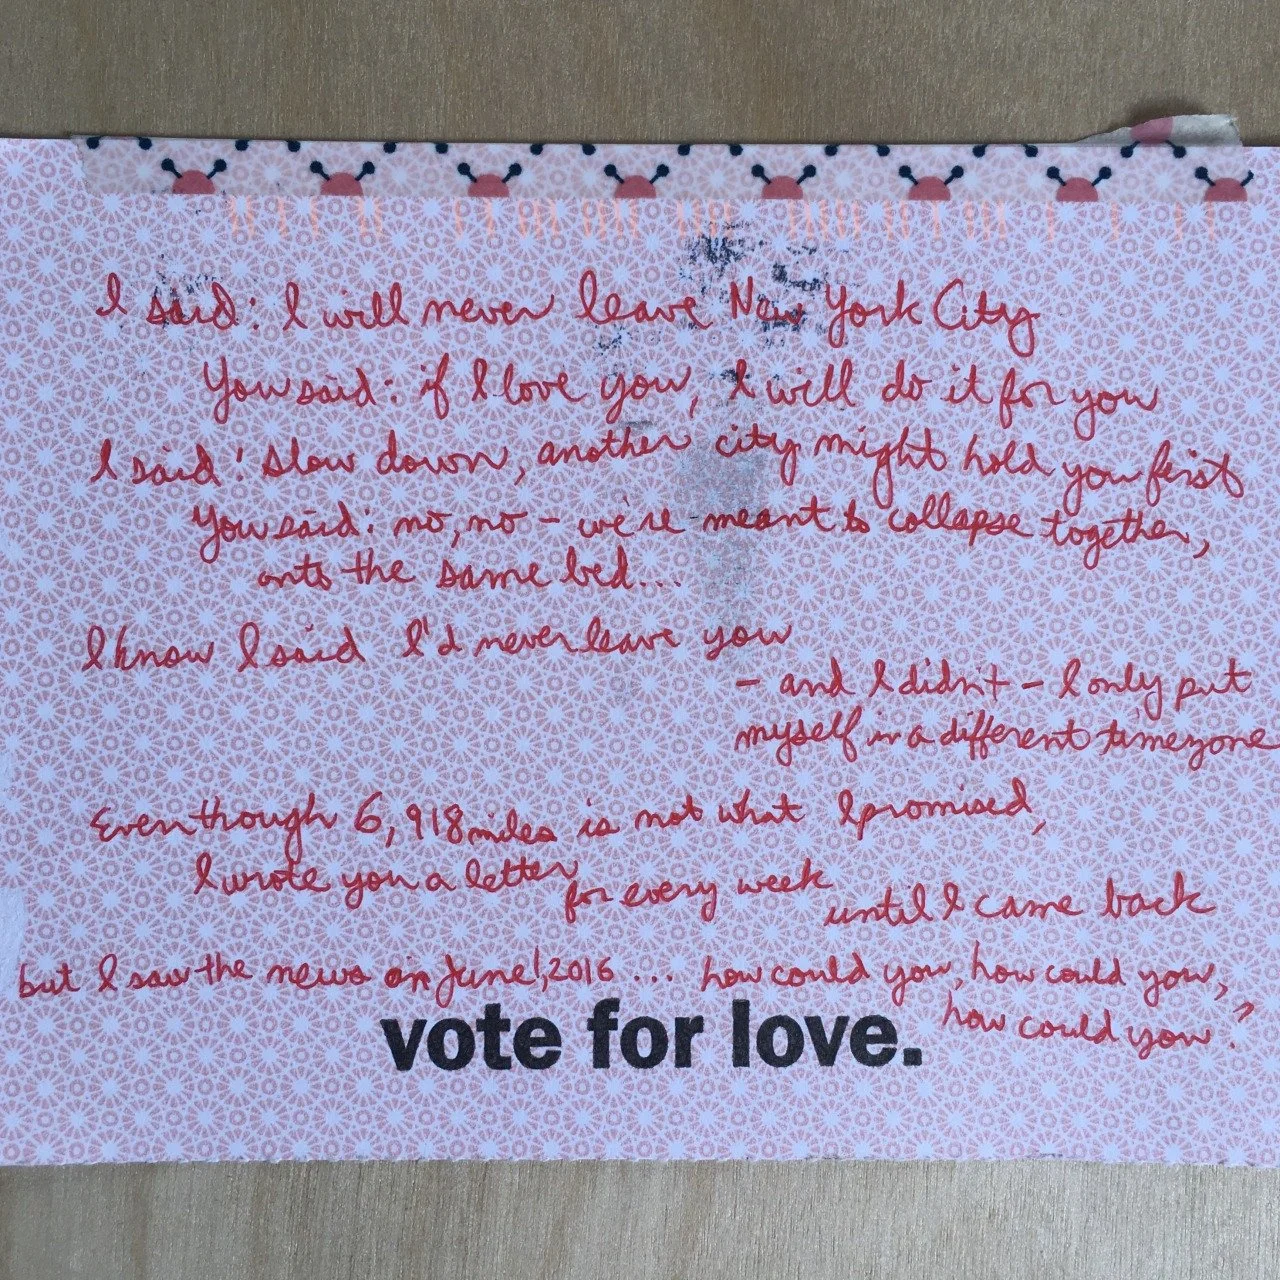 I said: I will never leave New York City
You said: if I love you, I will do it for you
I said: Slow down, another city might hold you first
You said: no, no – we're meant to collapse together,
onto the same bed...
I know I said I'd never leave you
– and I didn't – I only put
myself in a different timezone
Even though 6,918 miles is not what I promised,
I wrote you a letter for every week until I came back
but I saw the news on June 1, 2016 ... how could you, how could you,
how could you?
vote for love.